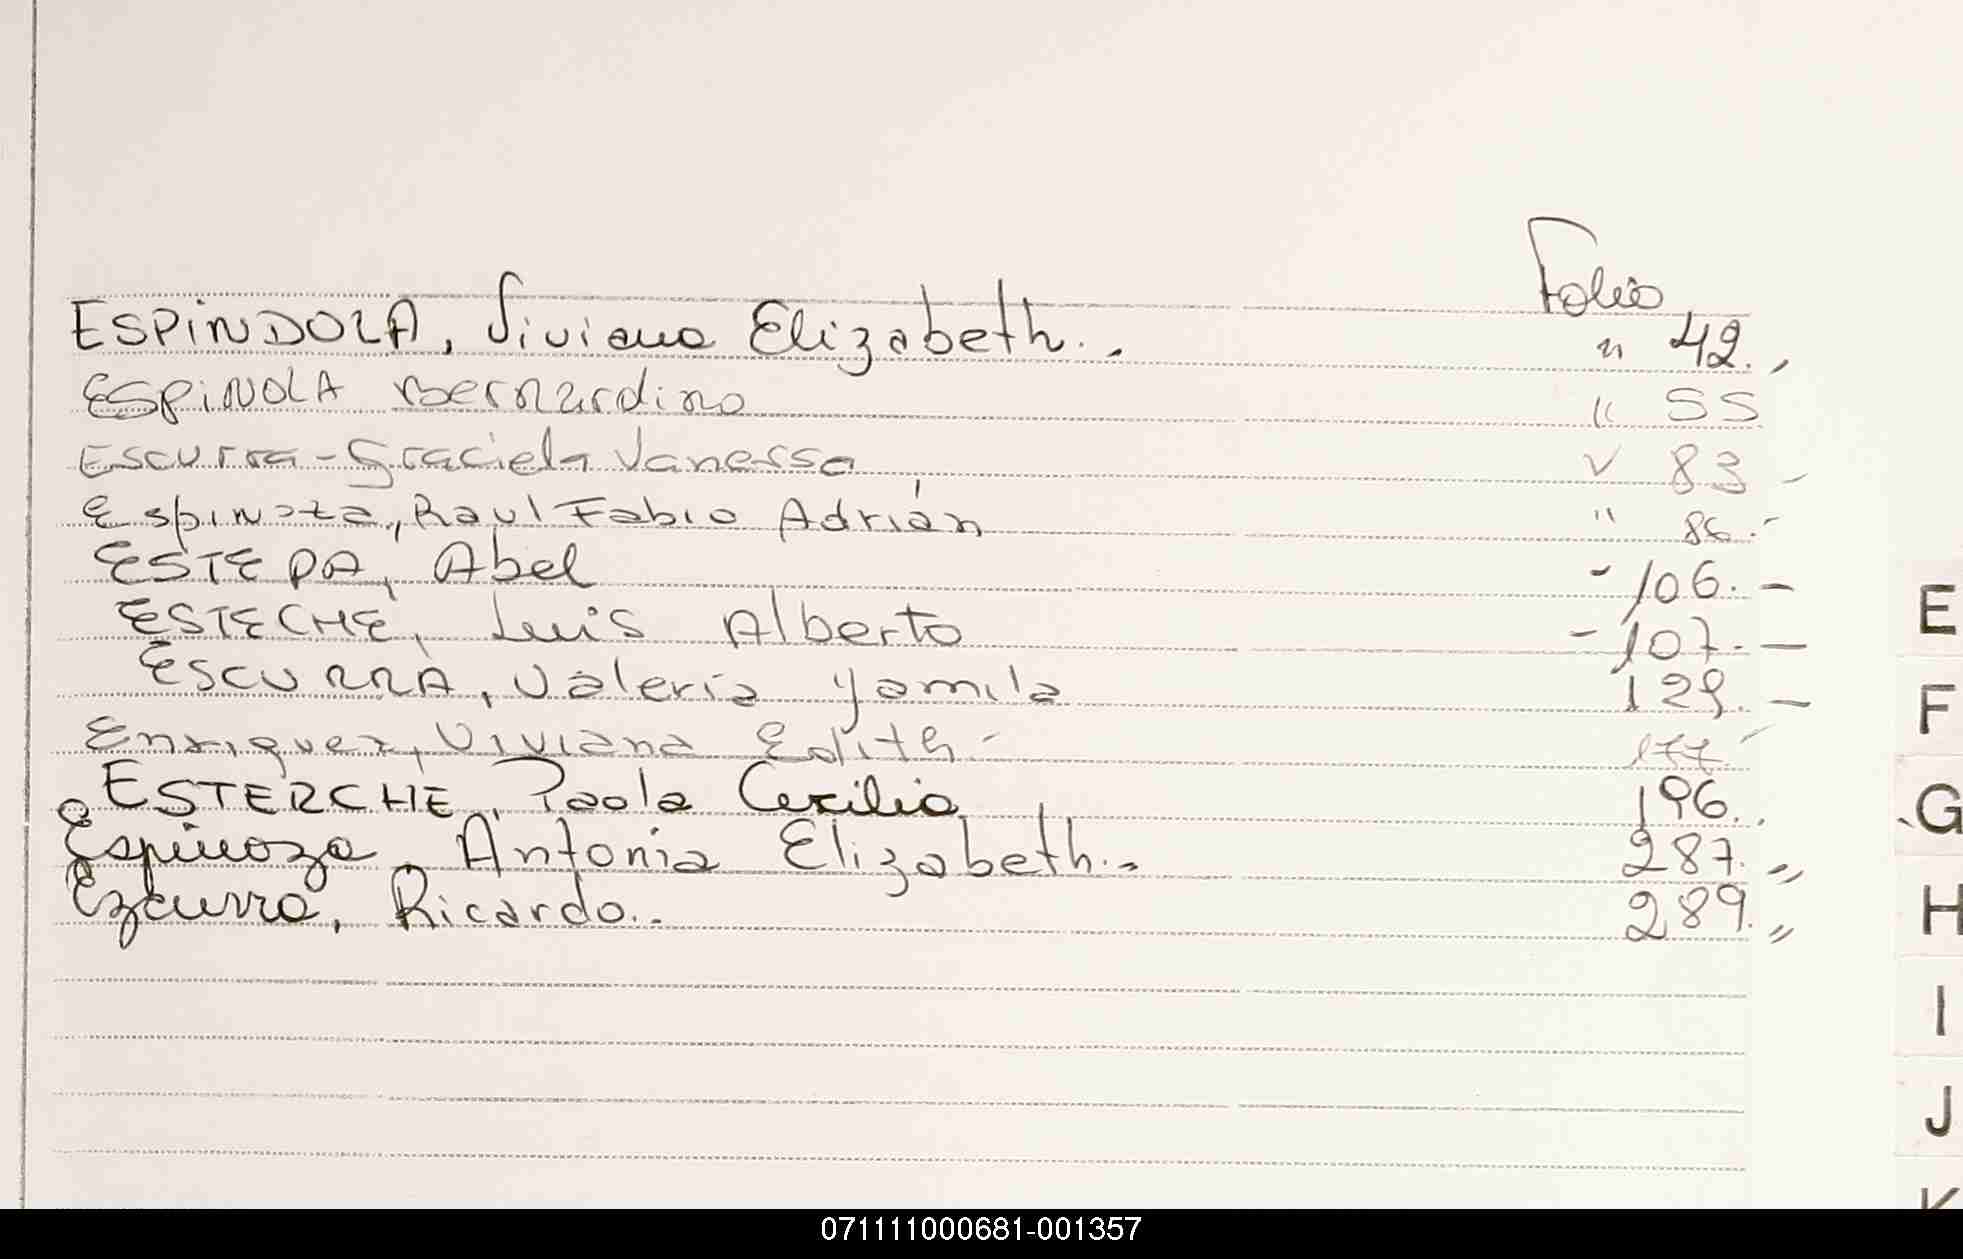 Folio
ESPINDOLA, Viviana Elizabeth.. " 42.,
ESPINOLA Bernardino " 55
Escurra-Graciela Vanessa " 83 -
Espinoza, Raul Fabio Adrián " 86.-
ESTEPA, Abel - 106.-
ESTECHE, Luis Alberto - 107.-
ESCURRA, Valeria Yamila 129.-
Enriquez, Viviana Edith- 177.-
ESTERCHE, Paola Cecilia 196..
Espinoza, Antonia Elizabeth.. 287.„
Ezcurra, Ricardo.. 289.„
E
F
G
H
I
J
K
071111000681-001357